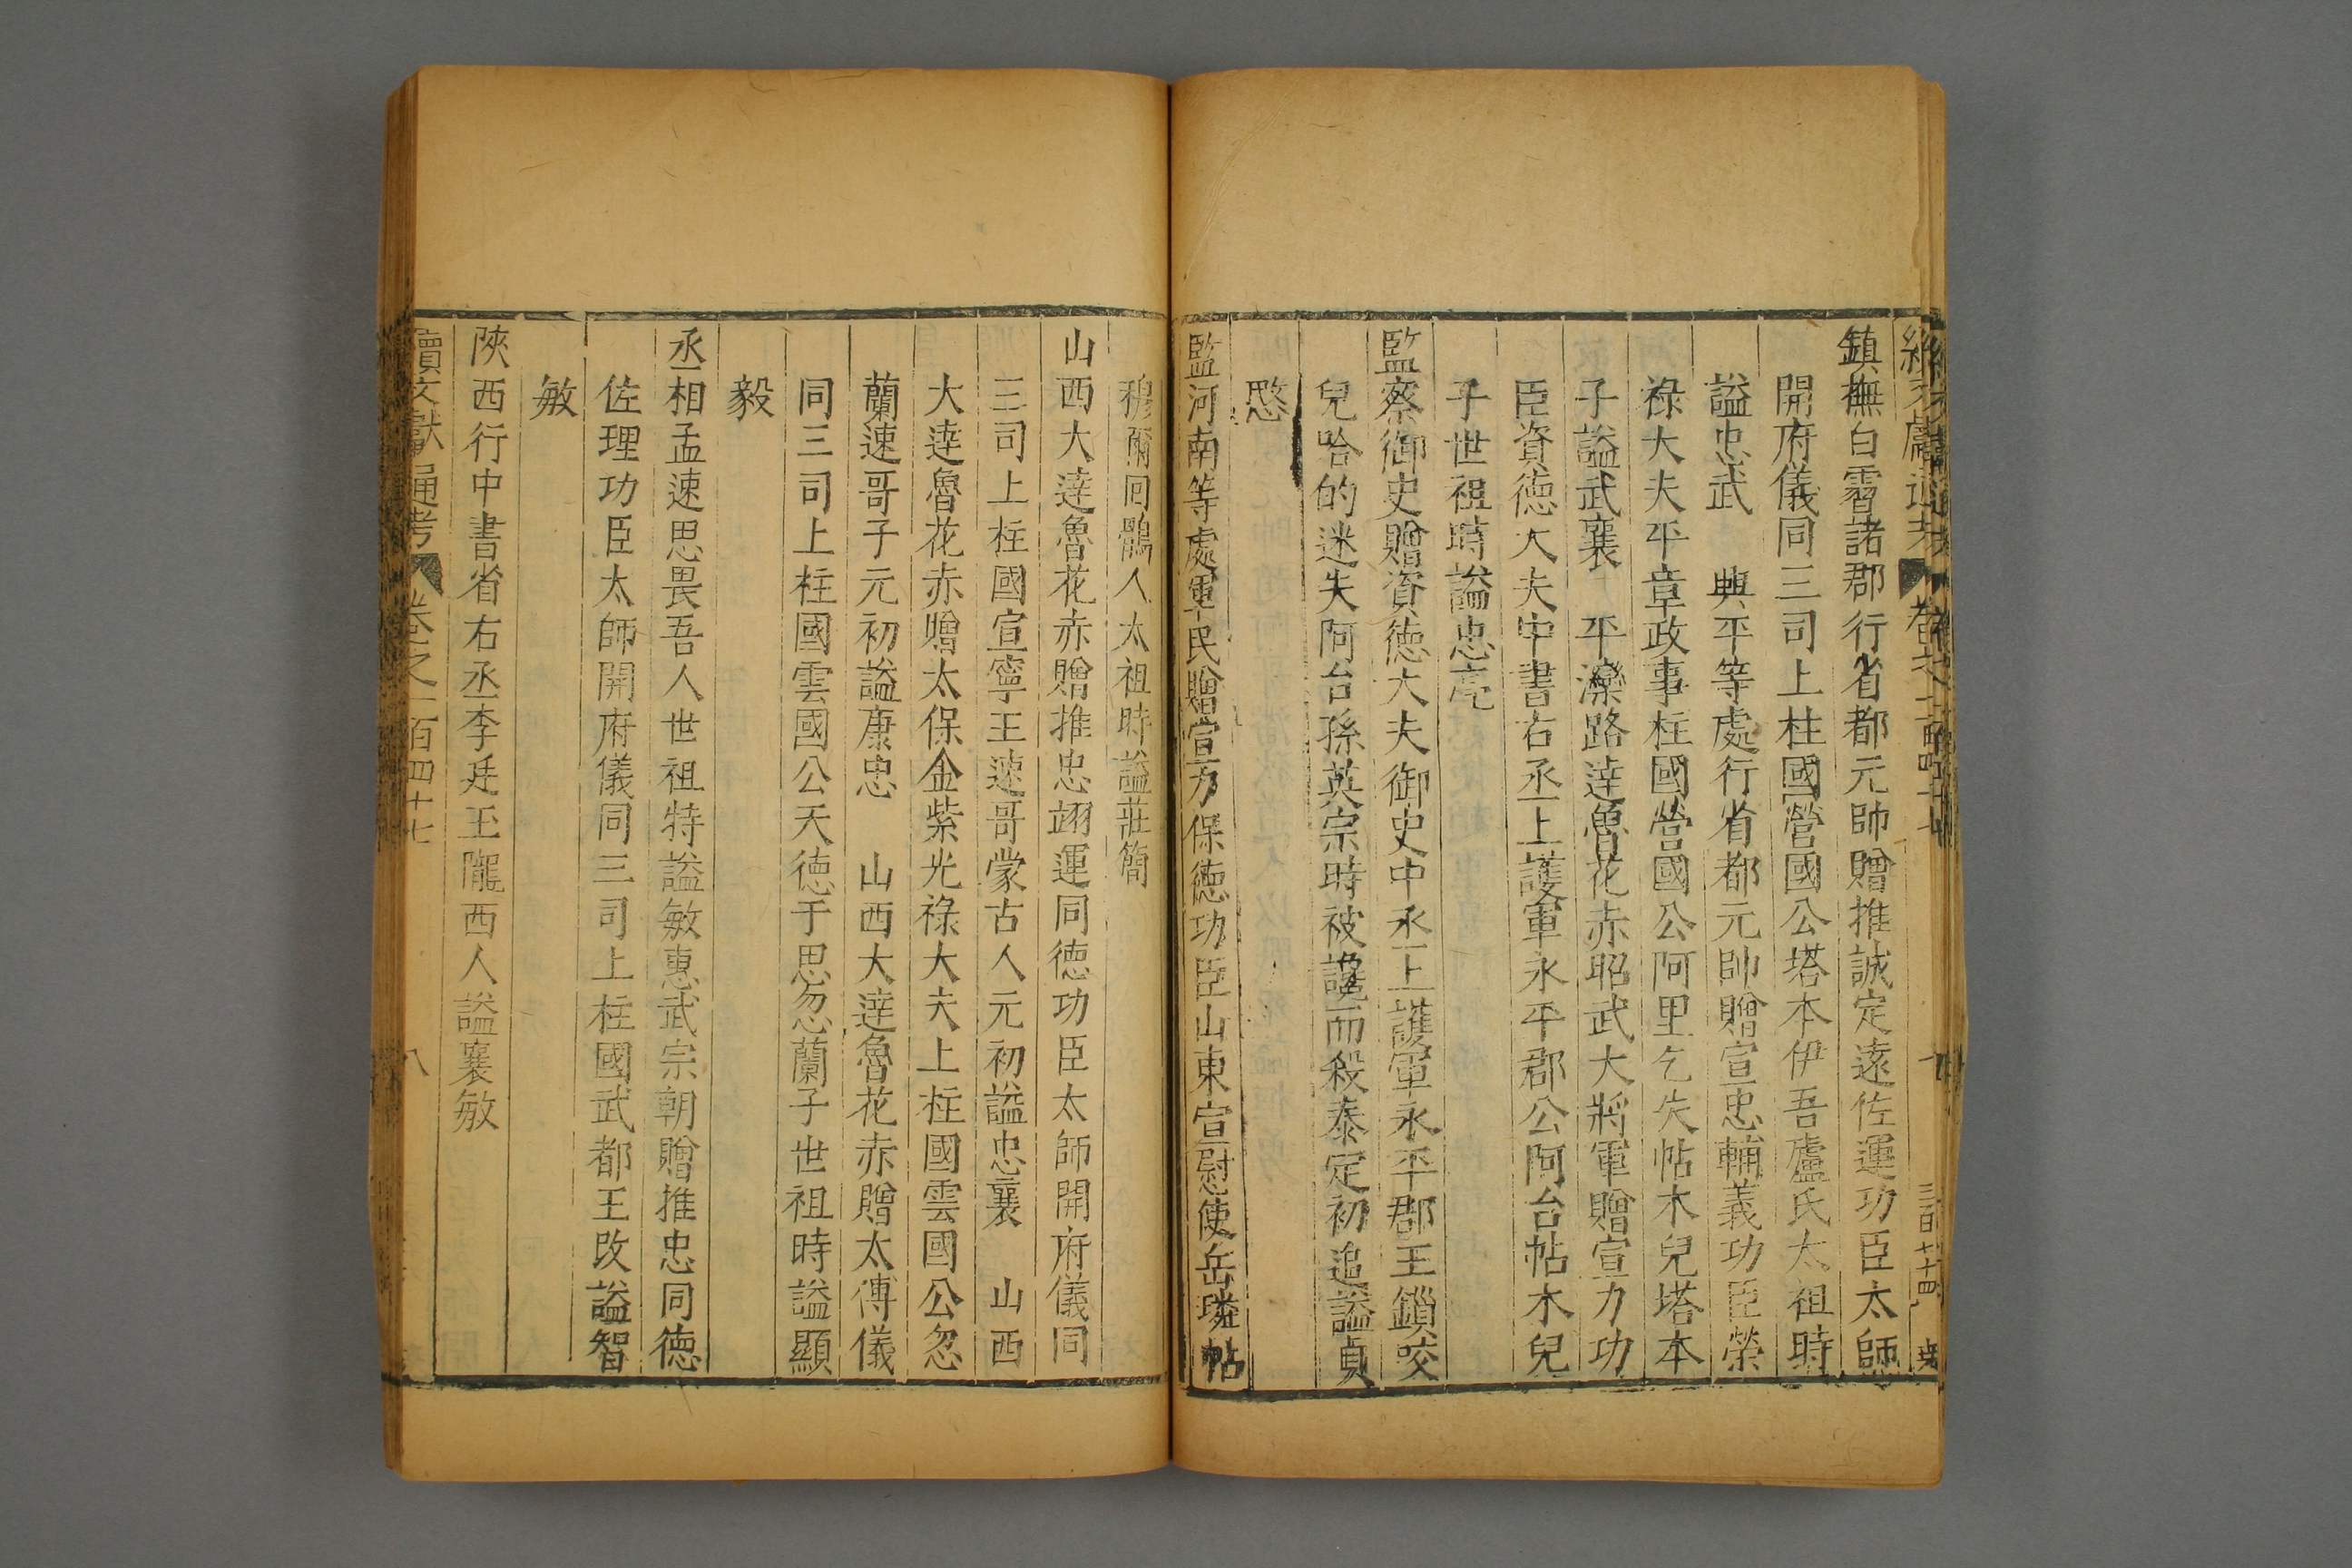 鎮撫白霫諸郡行省都元帥贈推誠定遠佐運功臣太師
開府儀同三司上柱國營國公塔本伊吾盧氏太祖時
謚忠武　興平等處行省都元帥贈宣忠輔義功臣榮
祿大夫平章政事柱國營國公阿里乞失帖木兒塔本
子謚武襄　平灤路達魯花赤昭武大將軍贈宣力功
臣資德大夫中書右丞上護軍永平郡公阿台帖木兒
子世祖時謚忠亮
監察御史贈資德大夫御史中丞上護軍永平郡王鎖咬
兒哈的迷失阿台孫英宗時被讒而殺泰定初追謚貞
愍
監河南等處軍民贈宣力保德功臣山東宣慰使岳璘帖
穆爾回鶻人太祖時謚莊簡
山西大達魯花赤贈推忠翊運同德功臣太師開府儀同
三司上柱國宣寧王速哥蒙古人元初謚忠襄　山西
大達魯花赤贈太保金紫光祿大夫上柱國雲國公忽
蘭速哥子元初謚康忠　山西大達魯花赤贈太傅儀
同三司上柱國雲國公天德于思忽蘭子世祖時謚顯
毅
丞相孟速思畏吾人世祖特謚敏惠武宗朝贈推忠同德
佐理功臣太師開府儀同三司上柱國武都王改謚智
敏
陝西行中書省右丞李廷玉隴西人謚襄敏
續文獻通考　卷之一百四十七　八